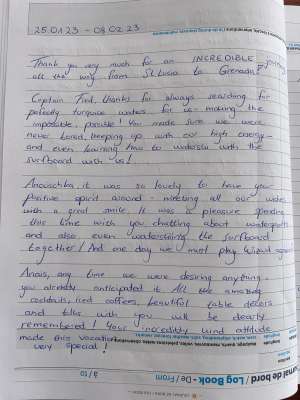 25.01.23 - 08.02.23
Thank you very much for an INCREDIBLE journey
all the way from St. Lucia to Grenada!
Captain Fred, thanks for always searching for
perfectly turquoise waters for us - making the
impossible, possible! You made sure we were
never bored, keeping up with our high energy -
and even learning how to waterski with the
surfboard with us!
Anouschka, it was so lovely to have your
positive spirit around - meeting all our wishes
with a great smile. It was a pleasure spending
this time with you, chatting about watersports
and also even waterskiing the surfboard
together! And one day we must play Wizard again!
Anaïs, any time we were desiring anything
you already anticipated it. All the amazing
cocktails, iced coffees, beautiful table decors
and talks with you will be dearly
remembered! Your incredibly kind attitude
made this vacation
very special!
à / to
Journal de bord / Log Book - De / From